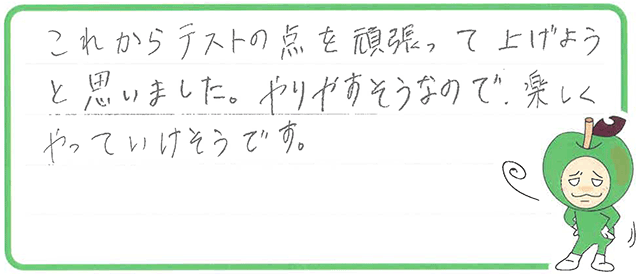 これからテストの点を頑張って上げよう
と思いました。やりやすそうなので、楽しく
やっていけそうです。